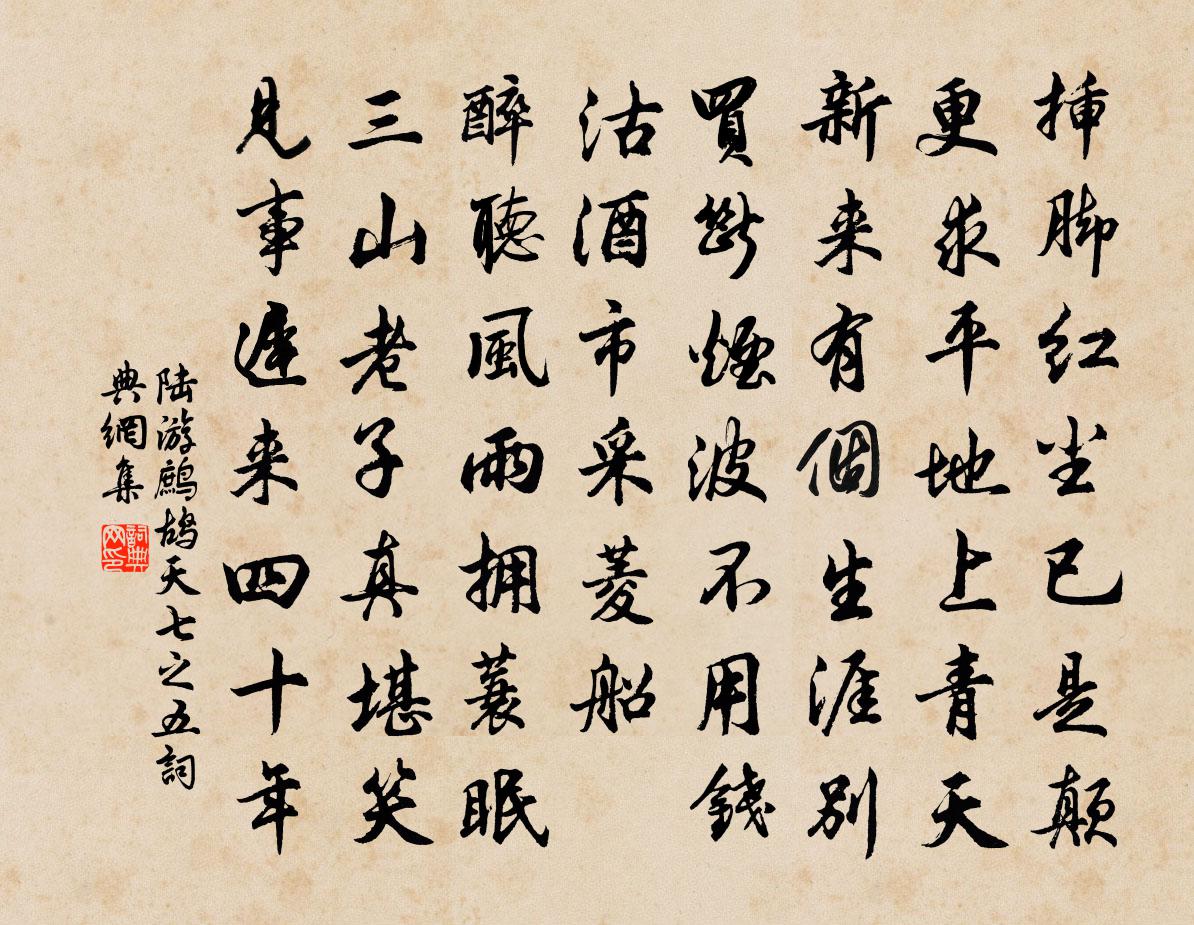 挿脚紅尘已是顛
更求平地上青天
新来有個生涯別
買斷煙波不用錢
沽酒市采菱船
醉聽風雨拥蓑眠
三山老子真堪笑
見事遲来四十年
陸游鷓鴣天七之五詞
典網集
詞典
网印